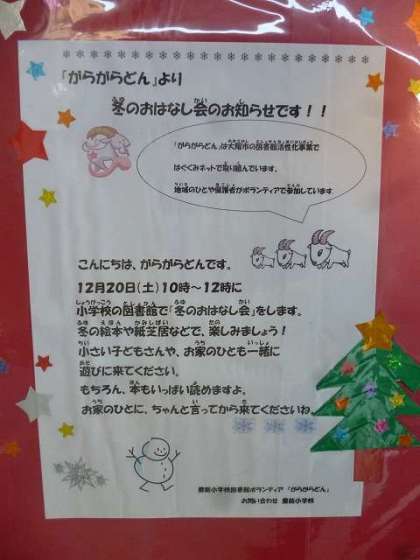 「がらがらどん」より
冬のおはなし会のお知らせです！！
「がらがらどん」は大阪市の図書館活性化事業で
はぐくみネットで取り組んでいます。
地域のひとや保護者がボランティアで参加しています
こんにちは、がらがらどんです。
12月20日(土)10時～12時に
小学校の図書館で「冬のおはなし会」をします。
冬の絵本や紙芝居などで、楽しみましょう！
小さい子どもさんや、お家のひとも一緒に
遊びに来てください。
もちろん、本もいっぱい読めますよ。
お家のひとに、ちゃんと言ってから来てくださいね。
小学校図書館ボランティア「がらがらどん」
お問い合わせ 小学校